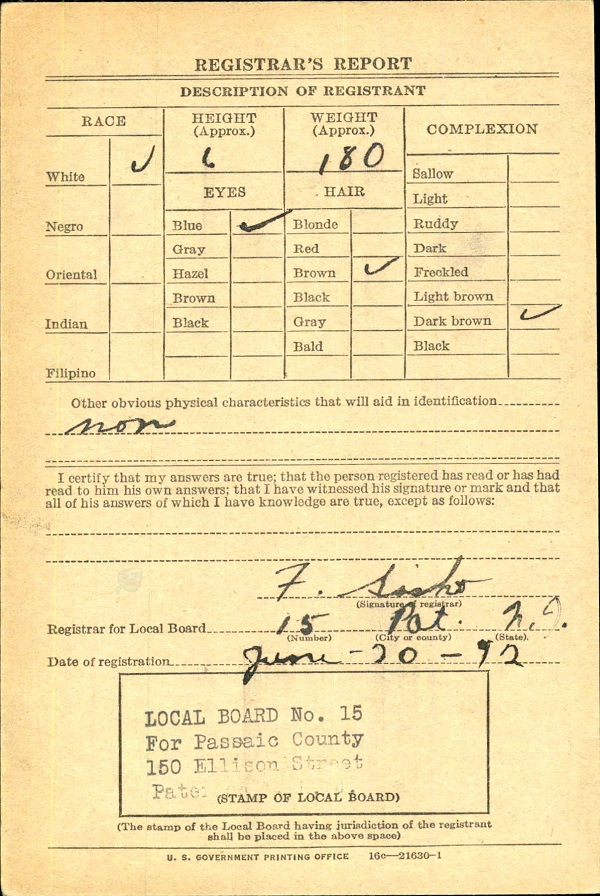 REGISTRAR'S REPORT
DESCRIPTION OF REGISTRANT
RACE
HEIGHT
(Approx.)
WEIGHT
(Approx.)
COMPLEXION
White ✓
6
180
Sallow
EYES
HAIR
Light
Negro
Blue ✓
Blonde
Ruddy
Gray
Red
Dark
Oriental
Hazel
Brown ✓
Freckled
Brown
Black
Light brown
Indian
Black
Gray
Dark brown ✓
Bald
Black
Filipino
Other obvious physical characteristics that will aid in identification
non
I certify that my answers are true; that the person registered has read or has had
read to him his own answers; that I have witnessed his signature or mark and that
all of his answers of which I have knowledge are true, except as follows:
F.
(Signature of registrar)
Registrar for Local Board 15 Pat. N.J.
(Number) (City or county) (State).
Date of registration June - 20 - 42
LOCAL BOARD No. 15
For Passaic County
150 Ellison Street
(STAMP OF LOCAL BOARD)
(The stamp of the Local Board having jurisdiction of the registrant
shall be placed in the above space)
U. S. GOVERNMENT PRINTING OFFICE 16c—21630-1